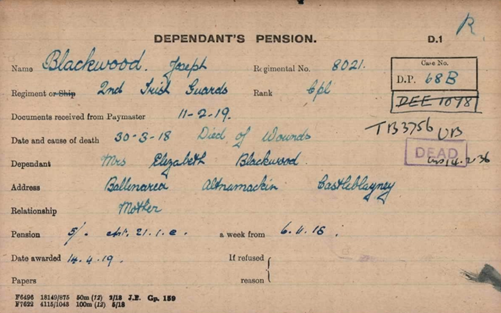 DEPENDANT'S PENSION. D.1 R
Name Blackwood. Joseph Regimental No. 8021.
Case No.
D.P. 68B
Regiment or Ship 2nd Irish Guards Rank Cpl
DEE 1078
Documents received from Paymaster 11-2-19.
TB3756 UB
Date and cause of death 30-3-18 Died of Wounds
DEAD
14.2.36
Dependant Mrs Elizabeth Blackwood
Address Ballinarea Altnamackin Castleblayney
Relationship Mother
Pension 5/- Art. 21.1.c. a week from
Date awarded 14.4.19. If refused
Papers reason
F6496 18140/875 50m (12) 3/18 J.P. Gp. 159
F7622 4115/1048 100m (12) 5/18